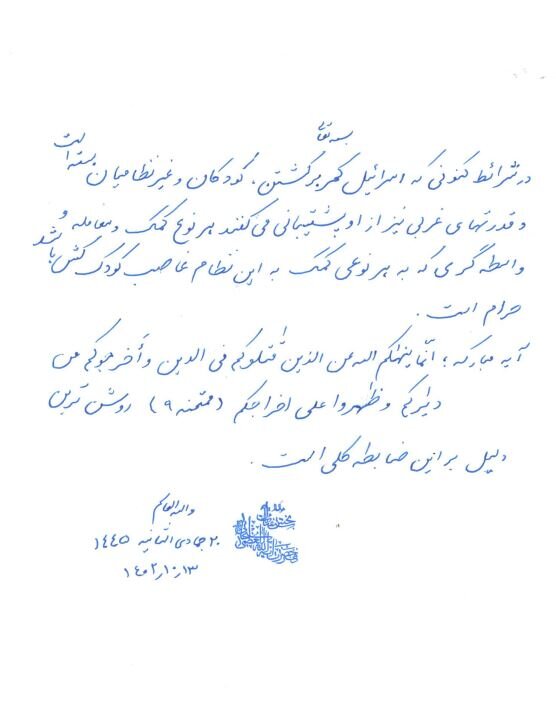 بسمه تعالی
در شرائط کنونی که اسرائیل کمر بر کشتن، کودکان و غیر نظامیان بسته است
و قدرتهای غربی نیز از او پشتیبانی می‌کنند هر نوع کمک و معامله و
واسطه گری که به هر نوعی کمک به این نظام غاصب کودک کش باشد
حرام است.
آیه مبارکه؛ انّما ینهاکم الله عن الذین قٰتلوکم فی الدین و أخرجوکم من
دیارکم و ظهروا علی اخراجکم (ممتحنه ۹) روشن ترین
دلیل بر این ضابطه کلی است.
والله العالم
۲۰ جمادی الثانیه ۱۴۴۵
۱۴۰۲/۱۰/۱۳